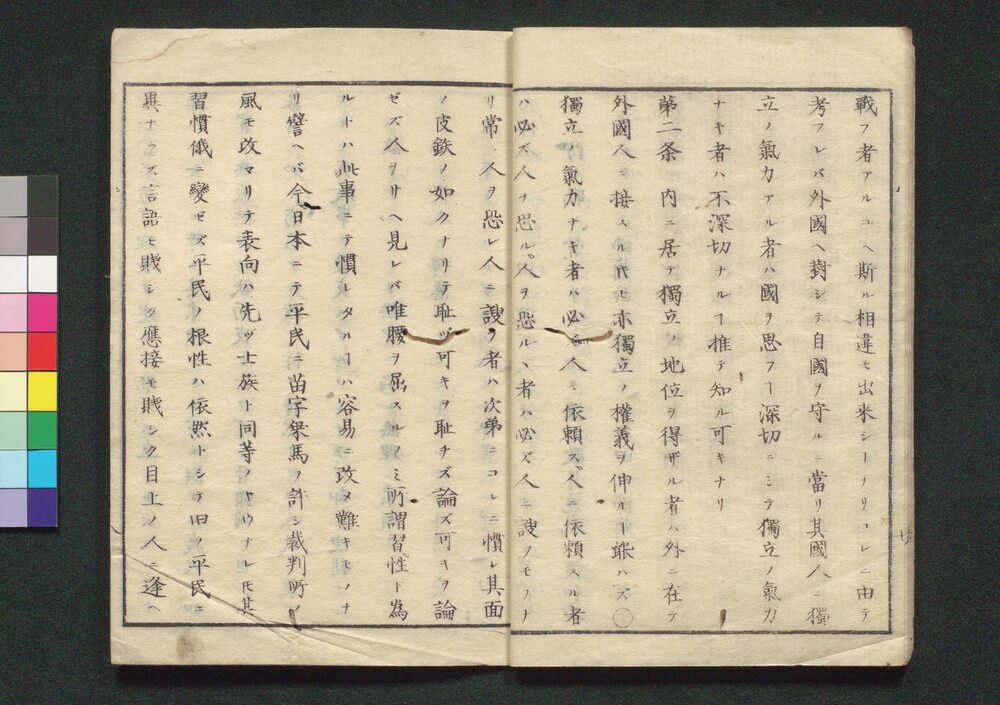 戰フ者アルユヘ斯ル相違モ出来シヿナリコレニ由テ
考フレバ外國ヘ對シテ自國ヲ守ルニ當リ其國人ニ獨
立ノ氣力アル者ハ國ヲ思フヿ深切ニシテ獨立ノ氣力
ナキ者ハ不深切ナルヿ推テ知ル可キナリ
第二条　内ニ居テ獨立ノ地位ヲ得ザル者ハ外ニ在テ
外國人ニ接スル𪜈モ亦獨立ノ權義ヲ伸ルヿ能ハズ〇
獨立ノ氣力ナキ者ハ必ズ人ニ依頼ス、人ニ依頼スル者
ハ必ズ人ヲ恐ル、人ヲ恐ルヽ者ハ必ズ人ニ諛ヲモノナ
リ常ニ人ヲ恐レ人ニ諛ヲ者ハ次第ニコレニ慣レ其面
ノ皮鉄ノ如クナリテ耻ヅ可キヲ耻チズ論ズ可キヲ論
ゼズ人ヲサヘ見レバ唯腰ヲ屈スルノミ所謂習性ト為
ルトハ此事ニテ慣レタルヿハ容易ニ改メ難キモノナ
リ譬ヘバ今日本ニテ平民ニ苗字乗馬ヲ許シ裁判所ノ
風モ改マリテ表向ハ先ヅ士族ト同等ノヤウナレ𪜈其
習慣俄ニ變ゼズ平民ノ根性ハ依然トシテ旧ノ平民ニ
異ナラズ言語モ賎シク應接モ賎シク目上ノ人ニ逢ヘ